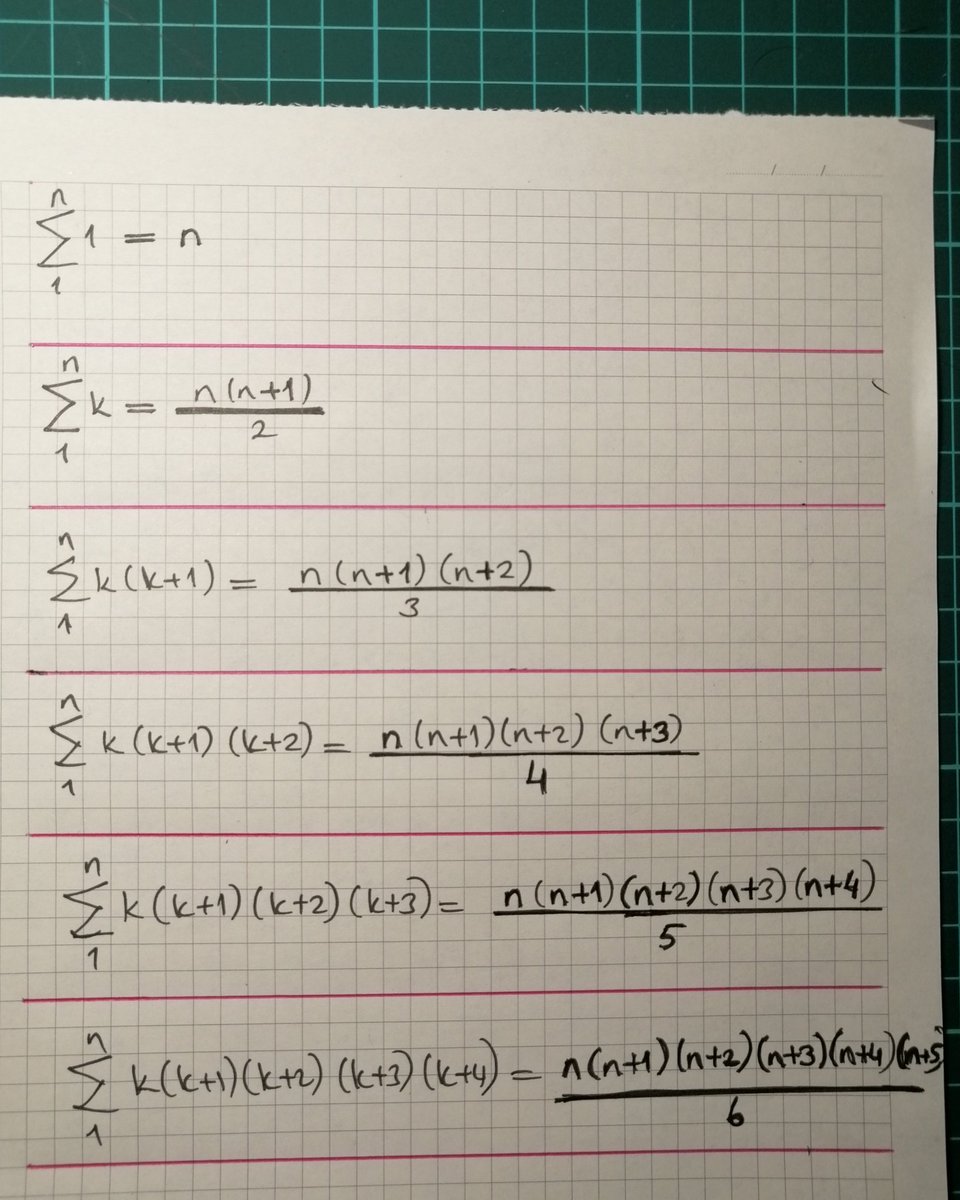 \sum_{1}^{n} 1 = n
\sum_{1}^{n} k = \frac{n(n+1)}{2}
\sum_{1}^{n} k(k+1) = \frac{n(n+1)(n+2)}{3}
\sum_{1}^{n} k(k+1)(k+2) = \frac{n(n+1)(n+2)(n+3)}{4}
\sum_{1}^{n} k(k+1)(k+2)(k+3) = \frac{n(n+1)(n+2)(n+3)(n+4)}{5}
\sum_{1}^{n} k(k+1)(k+2)(k+3)(k+4) = \frac{n(n+1)(n+2)(n+3)(n+4)(n+5)}{6}